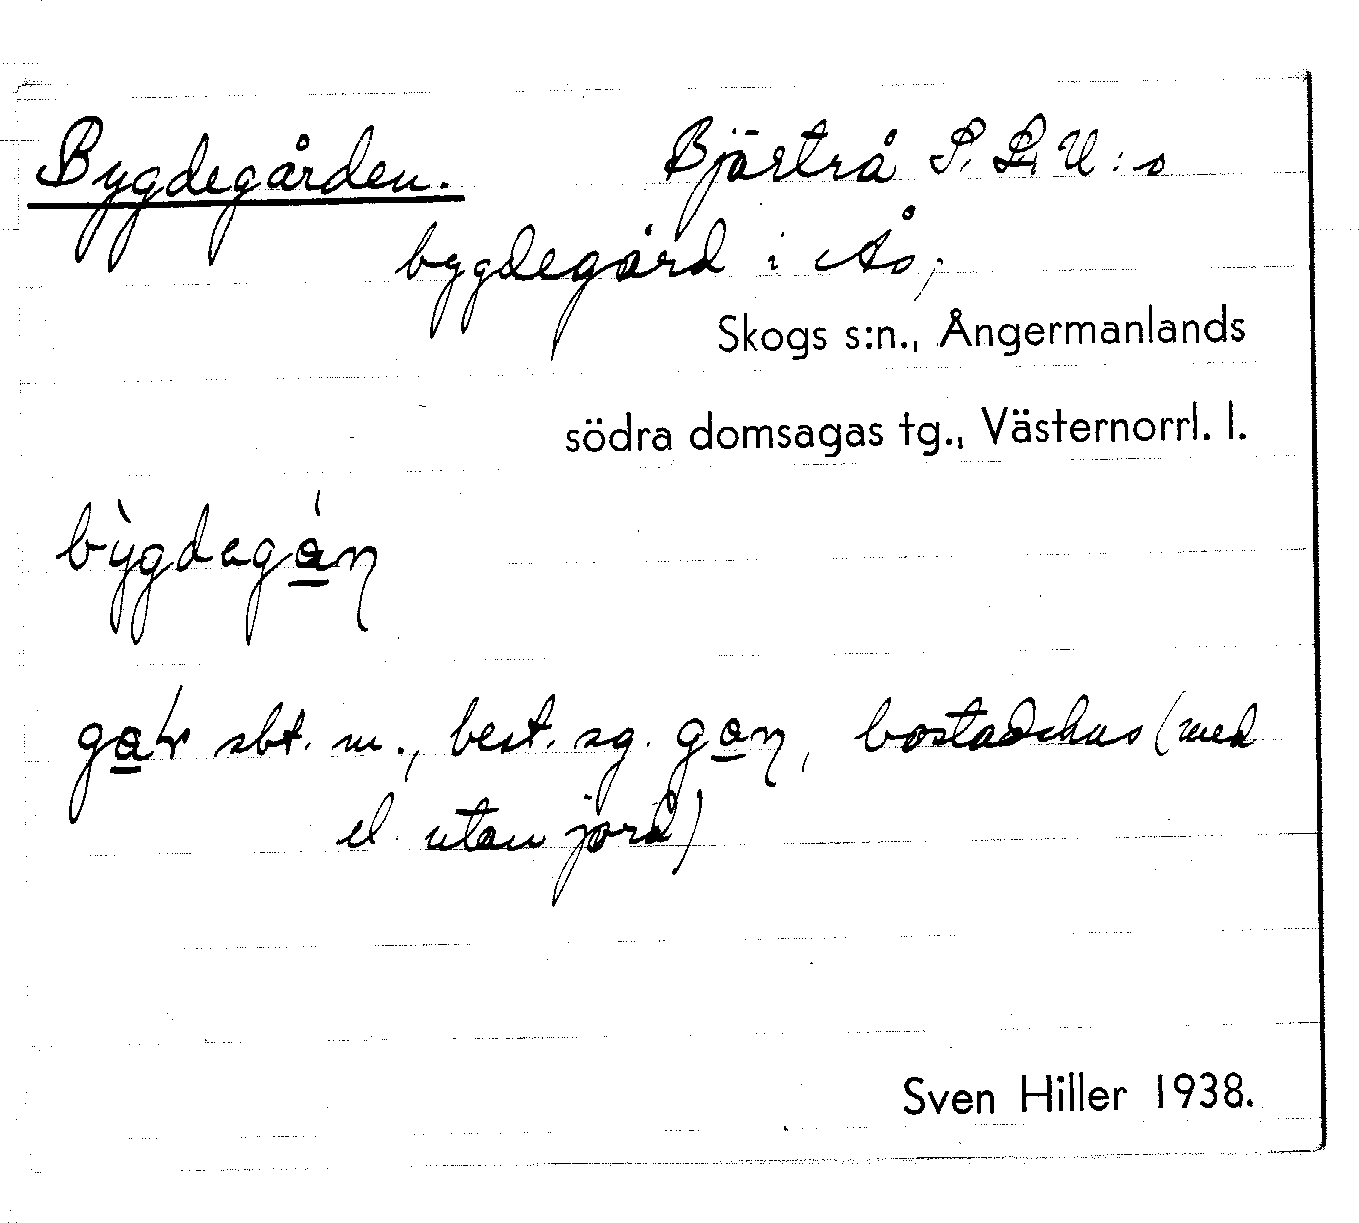 Bygdegården. Bjärtrå S. L. U:s
bygdegård i Ås,
Skogs s:n., Ångermanlands
södra domsagas tg., Västernorrl. l.
bỳgdegá̲ɳ
ga̲r sbt. m., best. sg. ga̲ɳ, bostadshus (med
el. utan jord)
Sven Hiller 1938.